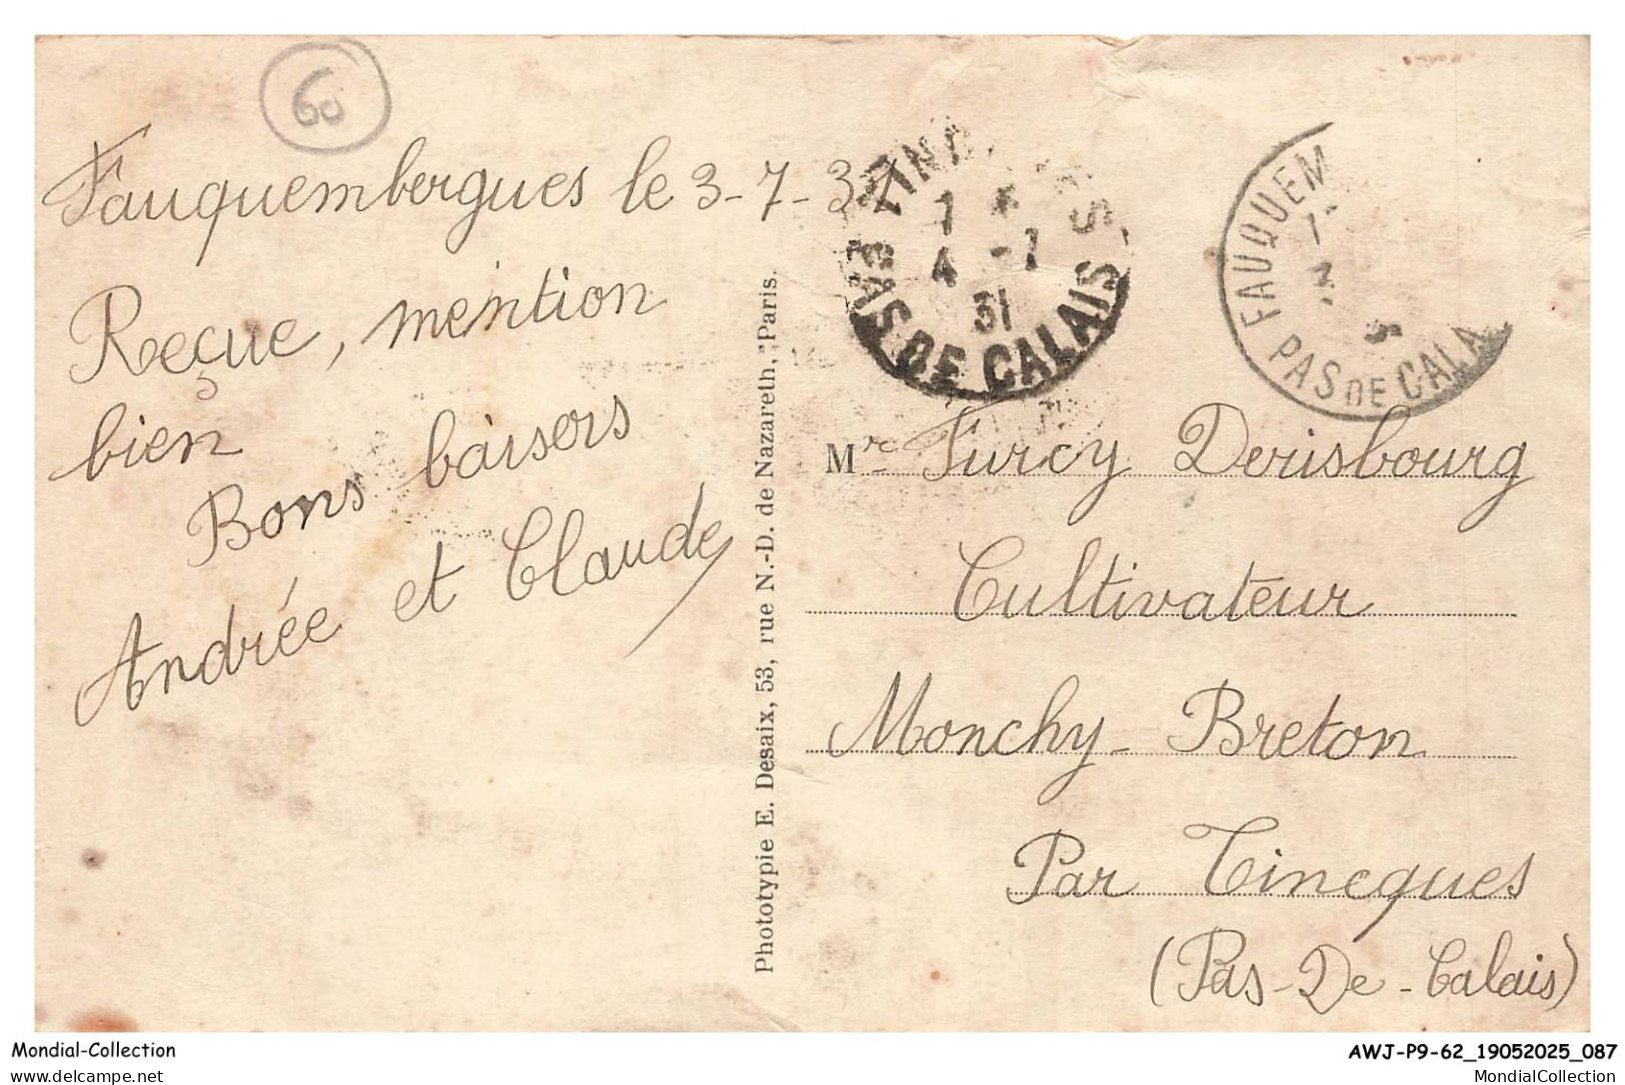 60
Fauquembergues le 3-7-31
Reçue, mention
bien
Bons baisers
Andrée et Claude
Phototypie E. Desaix, 53, rue N.-D. de Nazareth, Paris.
1
4 -7
31
PAS DE CALAIS
FAUQUEM
3
PAS DE CALA
Mr Furcy Derisbourg
Cultivateur
Monchy-Breton
Par Tincques
(Pas-De-Calais)
Mondial-Collection
AWJ-P9-62_19052025_087
delcampe.net
MondialCollection